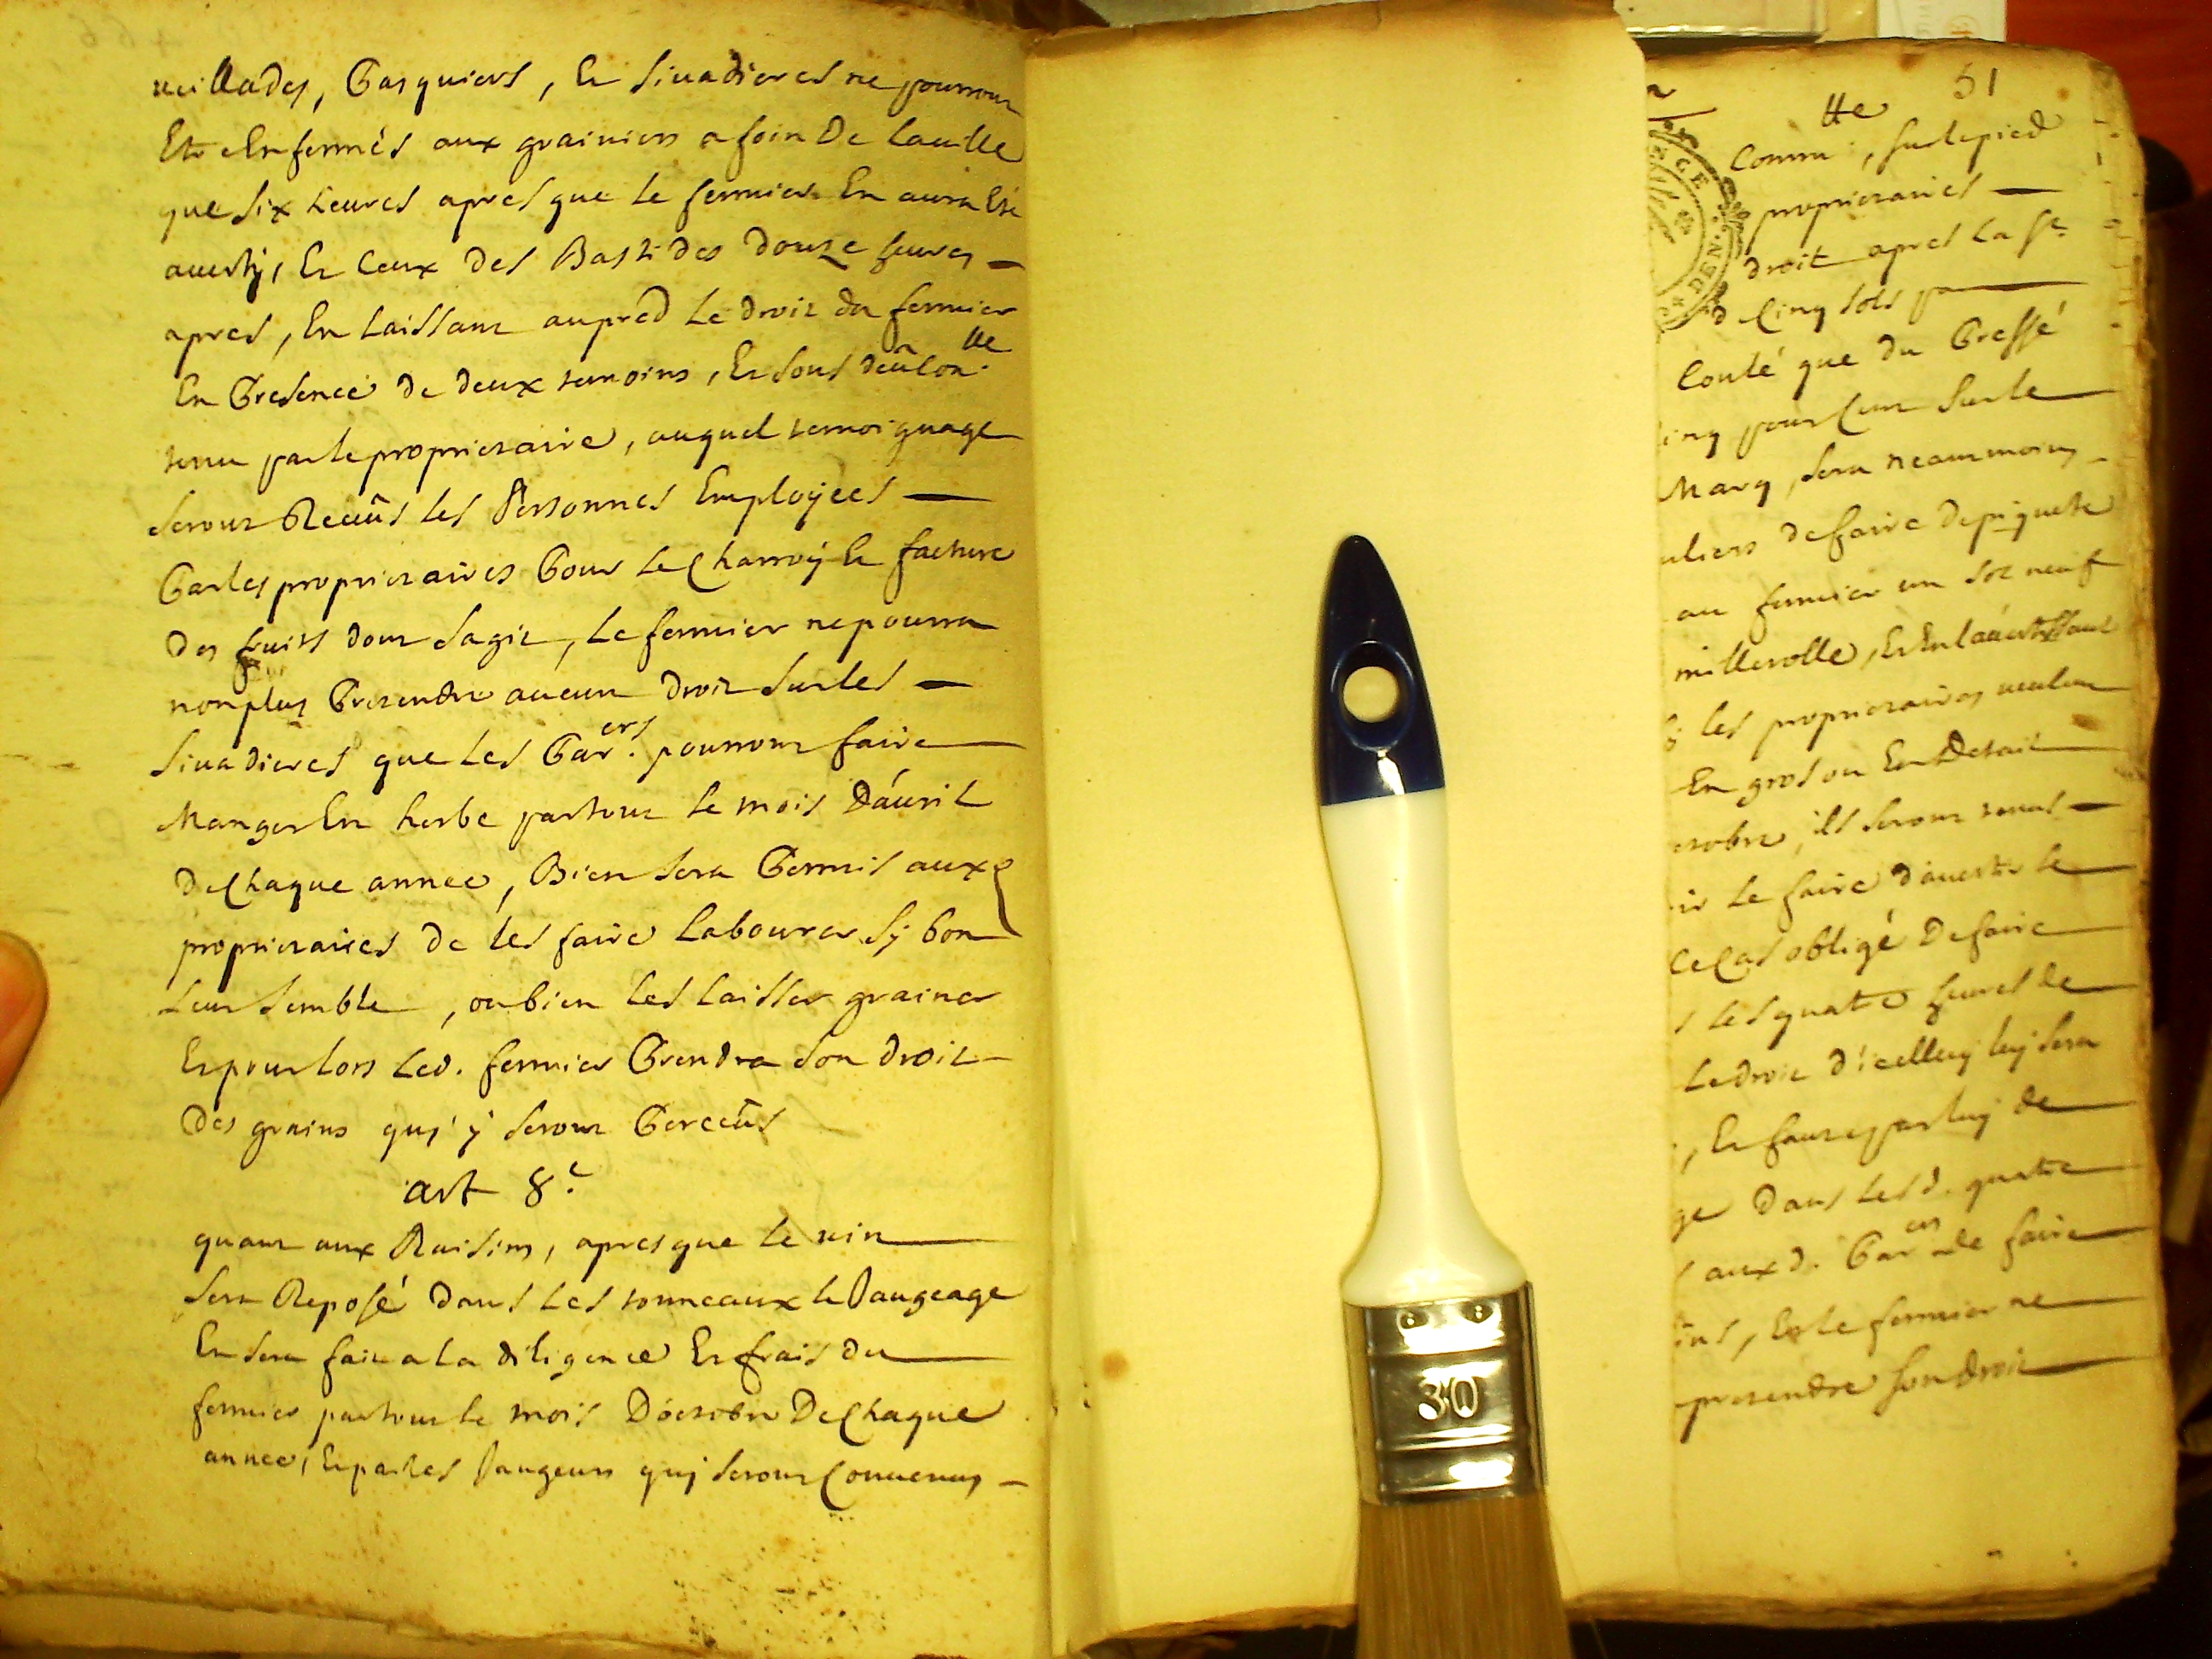 ueillades, Pasquiers, Et Siuadieres ne pourront
Etre Enfermés aux grainiers a foin De la uille
que Six heures apres que le fermier En aura Eté
auerty, Et Ceux des Bastides douze heures
apres, En laissant au pred le droit du fermier
En Presence de deux temoins, Et Sous
tenu par le proprietaire, auquel temoignage
Seront Receüs les Personnes Employées
Par les proprietaires Pour le Charroy Et facture
Des fruits dont Sagit, le fermier ne pourra
non plus Pretendre aucun droit Sur les
Siuadieres que les Par.ers pourront faire
Manger En herbe partout le mois D'auril
De Chaque année, Bien Sera Permis aux
proprietaires de les faire Labourer Sy bon
Leur Semble, ou bien les laisser grainer
Et pour lors Led. fermier Prendra Son droit
Des grains quj y Seront Perceüs
art 8.e
quant aux Raisins, apres que le uin
Sera Reposé dans les tonneaux le Jaugeage
En Sera fait a la diligence Et frais du
fermier partout le mois D'octobre De Chaque
année, Et par les Jaugeurs quj Seront Conuenus
51
Comm.tte, Sur le pied
proprietaires
droit apres la St.
Cinq Sols
Couté que du Pressé
pour Cent Sur le
Marq, Sera neantmoins
de faire de piquete
au fermier un Sol neuf
millerolle, Et En l'auertissant
les proprietaires ueulent
En gros ou En Detail
ils Seront tenus
le faire d'auertir le
Ce Cas obligé De faire
les quatre heures de
Le droit d'icelluy luy Sera
, Et faute par luy de
Dans les d. quatre
aux d. Par.ers de faire
, Et le fermier ne
pretendre Son droit
30